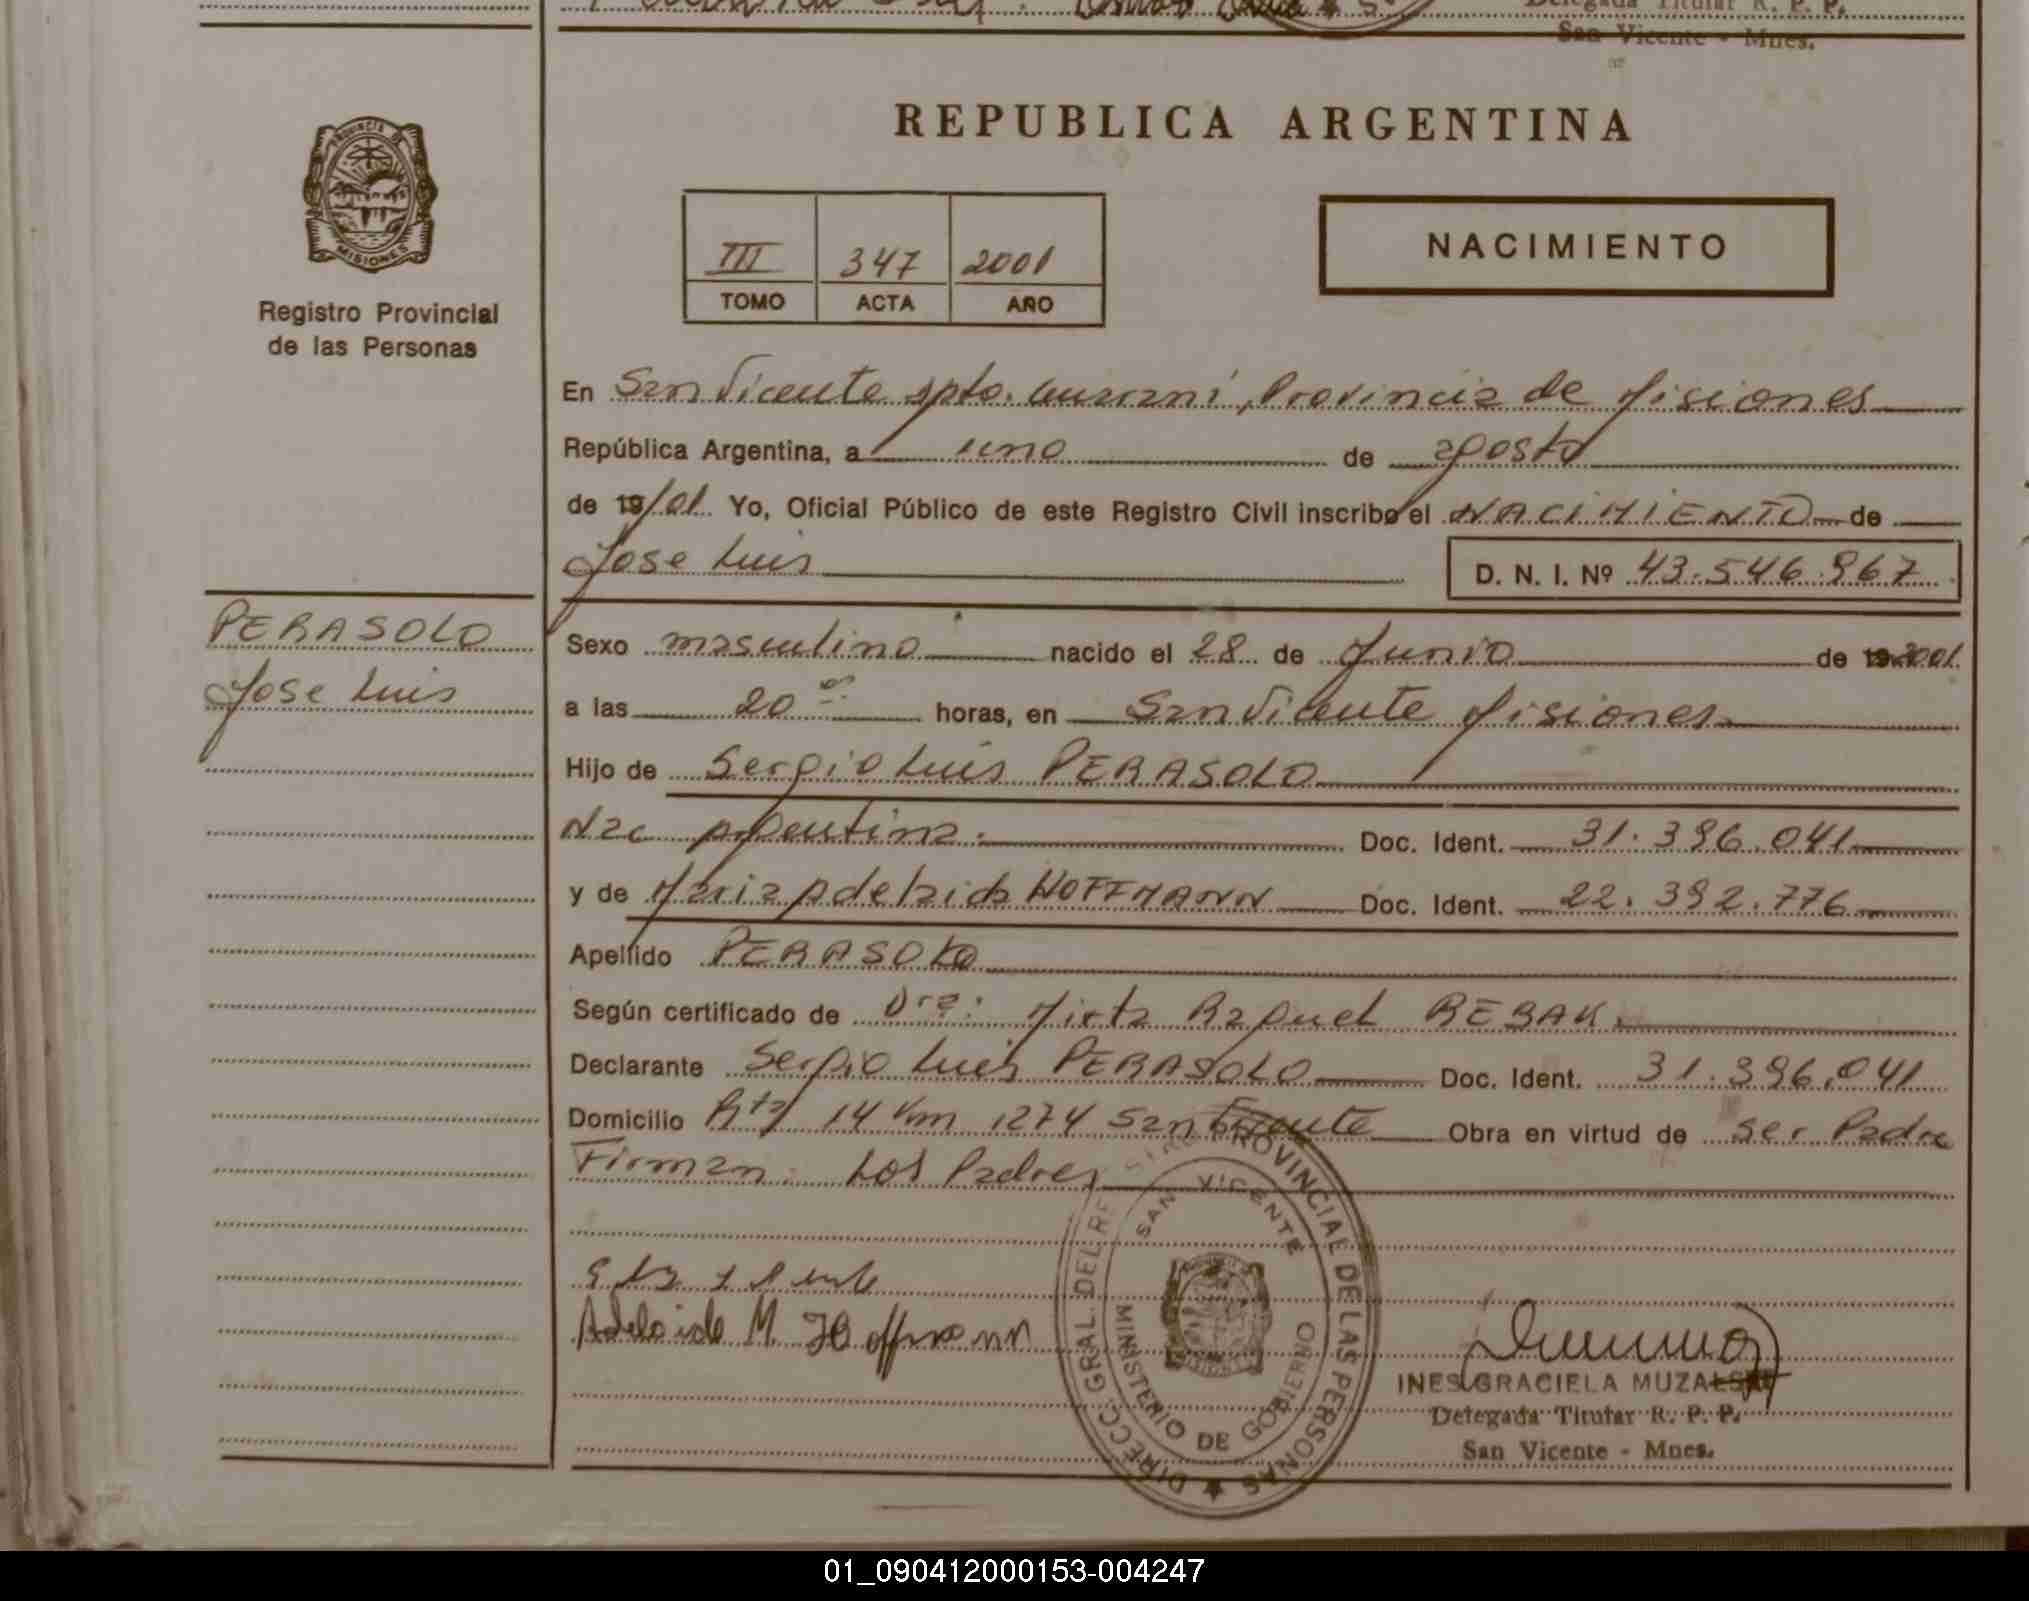 Delegada Titular R. P. P.
San Vicente - Mnes.
REPUBLICA ARGENTINA
PROVINCIA DE
MISIONES
Registro Provincial
de las Personas
III 347 2001
TOMO ACTA AÑO
NACIMIENTO
En San Vicente Dpto. Guaraní, Provincia de Misiones
República Argentina, a uno de agosto
de 19/01. Yo, Oficial Público de este Registro Civil inscribo el NACIMIENTO de
Jose Luis D. N. I. Nº 43.546.967
PERASOLO
Jose Luis
Sexo masculino nacido el 28 de Junio de 19 2001.
a las 20 hs horas, en San Vicente Misiones
Hijo de Sergio Luis PERASOLO
Nac Argentina. Doc. Ident. 31.396.041
y de Maria Adelaida HOFFMANN Doc. Ident. 22.392.776
Apellido PERASOLO
Según certificado de Dra: Mirta Raquel BEBAK.
Declarante Sergio Luis PERASOLO Doc. Ident. 31.396.041
Domicilio Rta 14 Km 1274 San Vicente Obra en virtud de ser Padre
Firman: Los Padres
Adelaida M. Hoffmann
DIRECC. GRAL. DEL REGISTRO PROVINCIAL DE LAS PERSONAS
SAN VICENTE
MINISTERIO DE GOBIERNO
INES GRACIELA MUZALSKI
Delegada Titular R. P. P.
San Vicente - Mnes.
01_090412000153-004247